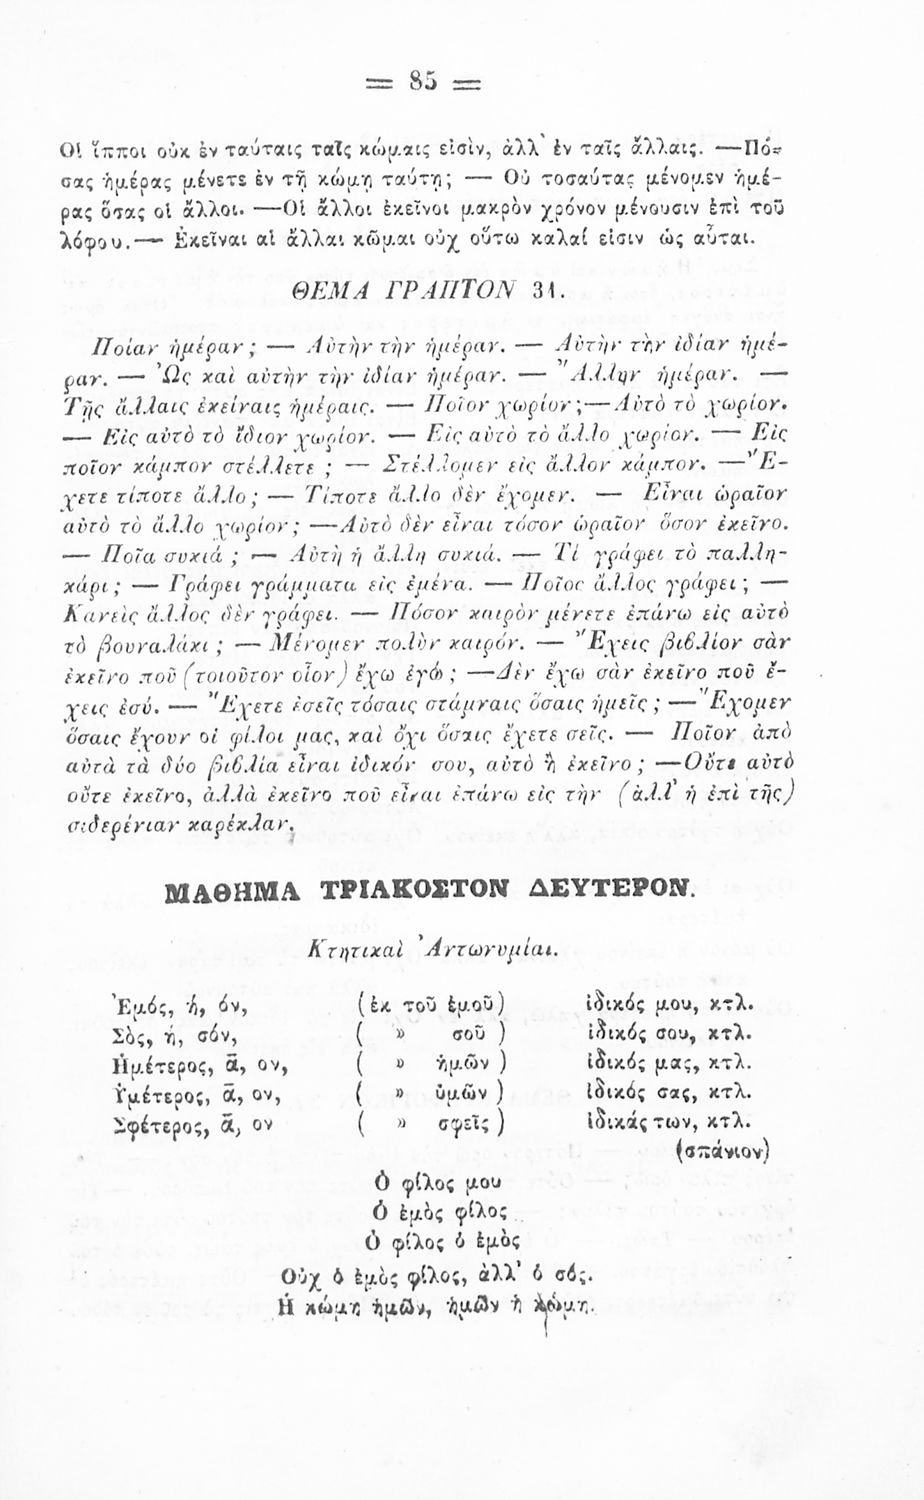 = 85 =
Οἱ ἵπποι οὐκ ἐν ταύταις ταῖς κώμαις εἰσὶν, ἀλλ' ἐν ταῖς ἄλλαις. —Πό-
σας ἡμέρας μένετε ἐν τῇ κώμῃ ταύτῃ; — Οὐ τοσαύτας μένομεν ἡμέ-
ρας ὅσας οἱ ἄλλοι. —Οἱ ἄλλοι ἐκεῖνοι μακρὸν χρόνον μένουσιν ἐπὶ τοῦ
λόφου.— Ἐκεῖναι αἱ ἄλλαι κῶμαι οὐχ οὕτω καλαί εἰσιν ὡς αὗται.
ΘΕΜΑ ΓΡΑΠΤΟΝ 31.
Ποίαν ἡμέραν; — Αὐτὴν τὴν ἡμέραν. — Αὐτὴν τὴν ἰδίαν ἡμέ-
ραν. — Ὡς καὶ αὐτὴν τὴν ἰδίαν ἡμέραν. — Ἄλλην ἡμέραν. —
Τῇς ἄλλαις ἐκείναις ἡμέραις. — Ποῖον χωρίον;—Αὐτὸ τὸ χωρίον.
— Εἰς αὐτὸ τὸ ἴδιον χωρίον. — Εἰς αὐτὸ τὸ ἄλλο χωρίον. — Εἰς
ποῖον κάμπον στέλλετε ; — Στέλλομεν εἰς ἄλλον κάμπον. —Ἔ-
χετε τίποτε ἄλλο; — Τίποτε ἄλλο δὲν ἔχομεν. — Εἶναι ὡραῖον
αὐτὸ τὸ ἄλλο χωρίον; —Αὐτὸ δὲν εἶναι τόσον ὡραῖον ὅσον ἐκεῖνο.
— Ποῖα συκιά ; — Αὐτὴ ἡ ἄλλη συκιά. — Τί γράφει τὸ παλλη-
κάρι; — Γράφει γράμματα εἰς ἐμένα. — Ποῖος ἄλλος γράφει; —
Κανεὶς ἄλλος δὲν γράφει. — Πόσον καιρὸν μένετε ἐπάνω εἰς αὐτὸ
τὸ βουναλάκι ; — Μένομεν πολὺν καιρόν. — Ἔχεις βιβλίον σὰν
ἐκεῖνο ποῦ (τοιοῦτον οἷον) ἔχω ἐγώ; —Δὲν ἔχω σὰν ἐκεῖνο ποῦ ἔ-
χεις ἐσύ. — Ἔχετε ἐσεῖς τόσαις στάμναις ὅσαις ἡμεῖς ; —Ἔχομεν
ὅσαις ἔχουν οἱ φίλοι μας, καὶ ὄχι ὅσαις ἔχετε σεῖς. — Ποῖον ἀπὸ
αὐτὰ τὰ δύο βιβλία εἶναι ἰδικόν σου, αὐτὸ ἢ ἐκεῖνο; —Οὔτε αὐτὸ
οὔτε ἐκεῖνο, ἀλλὰ ἐκεῖνο ποῦ εἶναι ἐπάνω εἰς τὴν (ἀλλ' ἡ ἐπὶ τῆς)
σιδερένιαν καρέκλαν.
ΜΑΘΗΜΑ ΤΡΙΑΚΟΣΤΟΝ ΔΕΥΤΕΡΟΝ.
Κτητικαὶ Ἀντωνυμίαι.
Ἐμός, ή, όν, (ἐκ τοῦ ἐμοῦ) ἰδικός μου, κτλ.
Σὸς, ή, σόν, ( » σοῦ ) ἰδικός σου, κτλ.
Ἡμέτερος, ᾱ, ον, ( » ἡμῶν ) ἰδικός μας, κτλ.
Ὑμέτερος, ᾱ, ον, ( » ὑμῶν ) ἰδικός σας, κτλ.
Σφέτερος, ᾱ, ον ( » σφεῖς ) ἰδικάς των, κτλ.
(σπάνιον)
Ὁ φίλος μου
Ὁ ἐμὸς φίλος
Ὁ φίλος ὁ ἐμὸς
Οὐχ ὁ ἐμὸς φίλος, ἀλλ' ὁ σός.
Ἡ κώμη ἡμῶν, ἡμῶν ἡ κώμη.